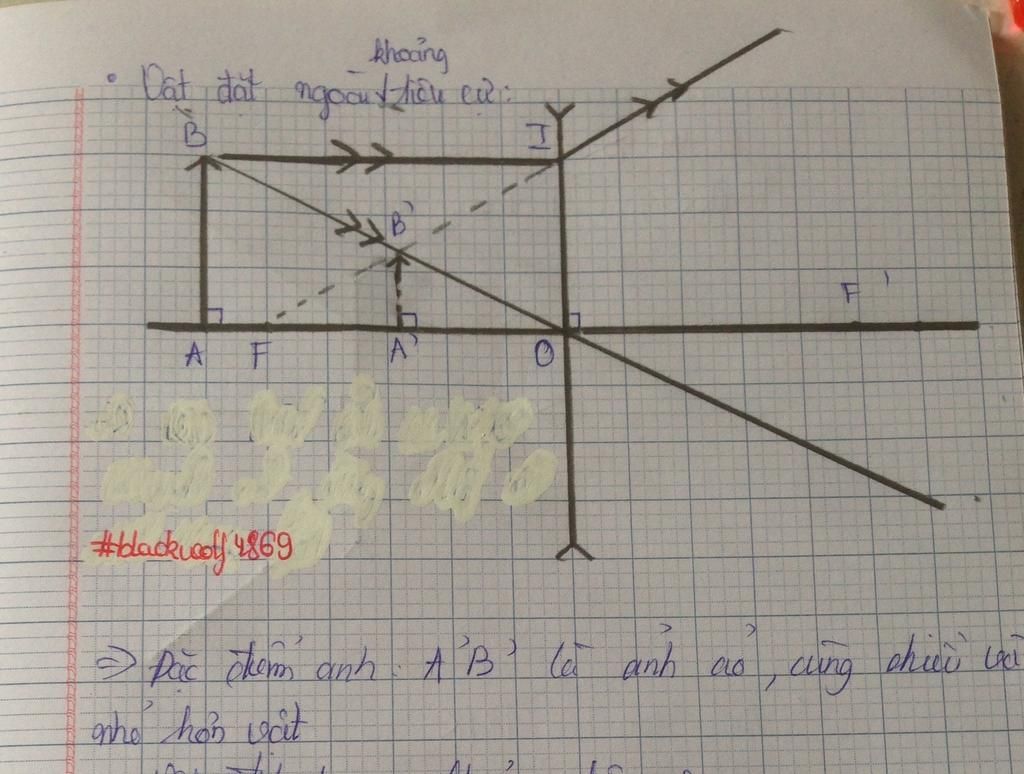 khoảng
• Vật đặt ngoài tiêu cự:
B I
B'
F'
A F A' O
#blackwolf4869
=> Đặc điểm ảnh: A'B' là ảnh ảo, cùng chiều và
nhỏ hơn vật